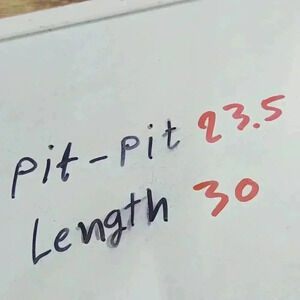 pit-pit 23.5
Length 30